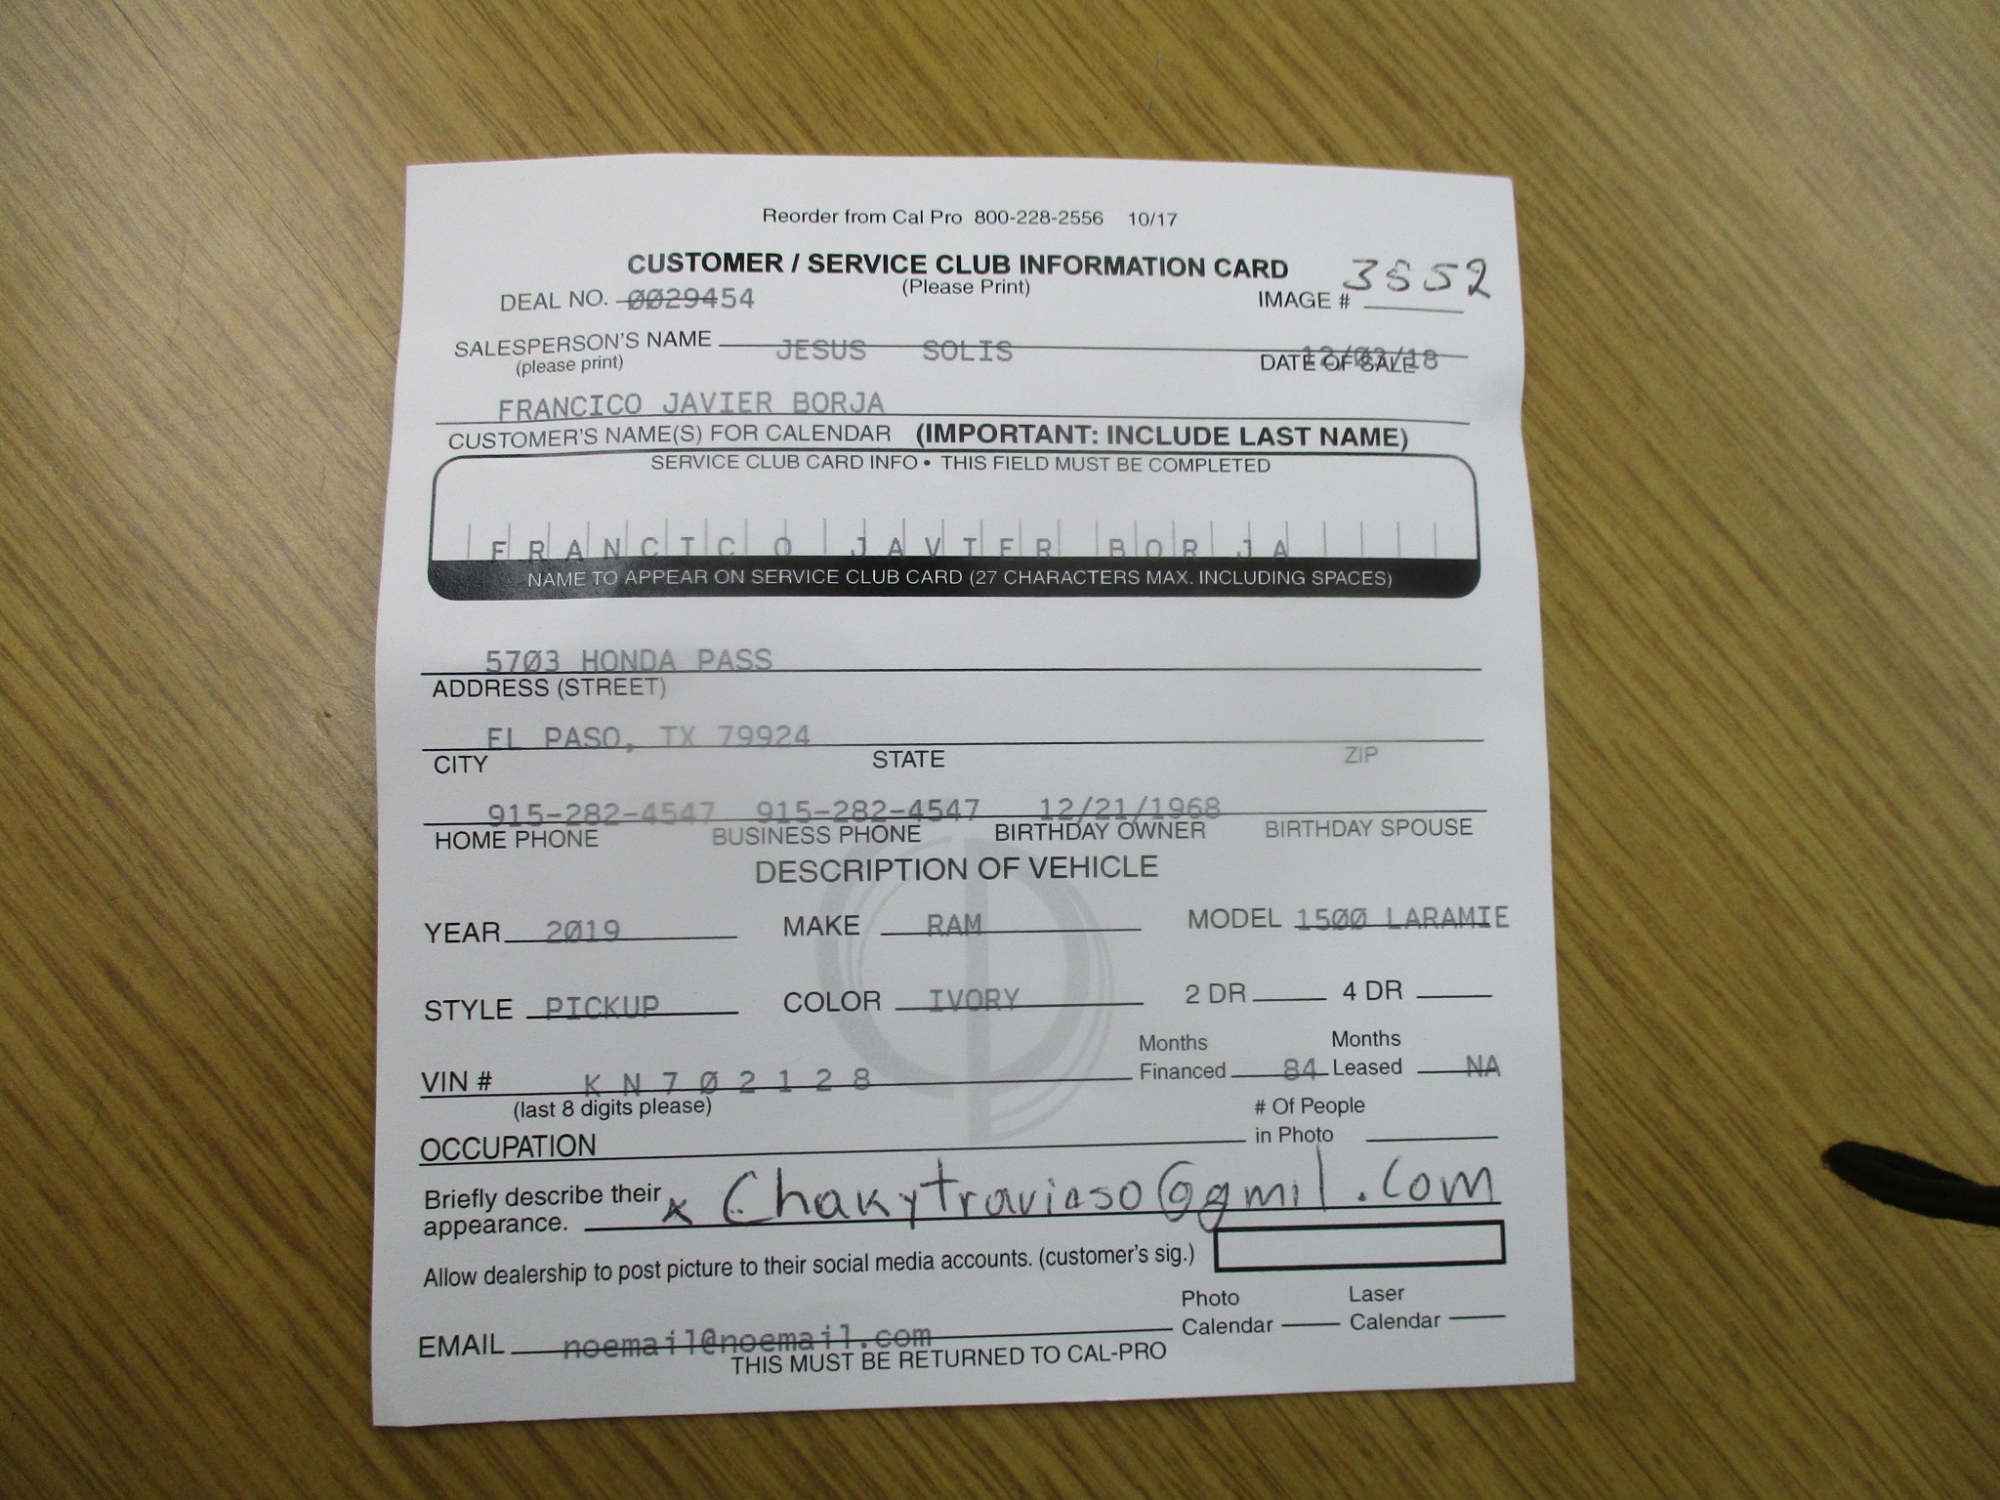 Reorder from Cal Pro 800-228-2556 10/17
CUSTOMER / SERVICE CLUB INFORMATION CARD
(Please Print)
DEAL NO. 0029454 IMAGE # 3552
SALESPERSON'S NAME JESUS SOLIS
(please print) DATE OF SALE
FRANCICO JAVIER BORJA
CUSTOMER'S NAME(S) FOR CALENDAR (IMPORTANT: INCLUDE LAST NAME)
SERVICE CLUB CARD INFO • THIS FIELD MUST BE COMPLETED
FRANCICO JAVIER BORJA
NAME TO APPEAR ON SERVICE CLUB CARD (27 CHARACTERS MAX. INCLUDING SPACES)
5703 HONDA PASS
ADDRESS (STREET)
EL PASO, TX 79924
CITY STATE ZIP
915-282-4547 915-282-4547 12/21/1968
HOME PHONE BUSINESS PHONE BIRTHDAY OWNER BIRTHDAY SPOUSE
DESCRIPTION OF VEHICLE
YEAR 2019 MAKE RAM MODEL 1500 LARAMIE
STYLE PICKUP COLOR IVORY 2 DR 4 DR
Months Months
VIN # KN702128 Financed 84 Leased NA
(last 8 digits please) # Of People
OCCUPATION in Photo
Briefly describe their x Chakytravieso@gmil.com
appearance.
Allow dealership to post picture to their social media accounts. (customer's sig.)
Photo Laser
EMAIL noemail@noemail.com Calendar Calendar
THIS MUST BE RETURNED TO CAL-PRO